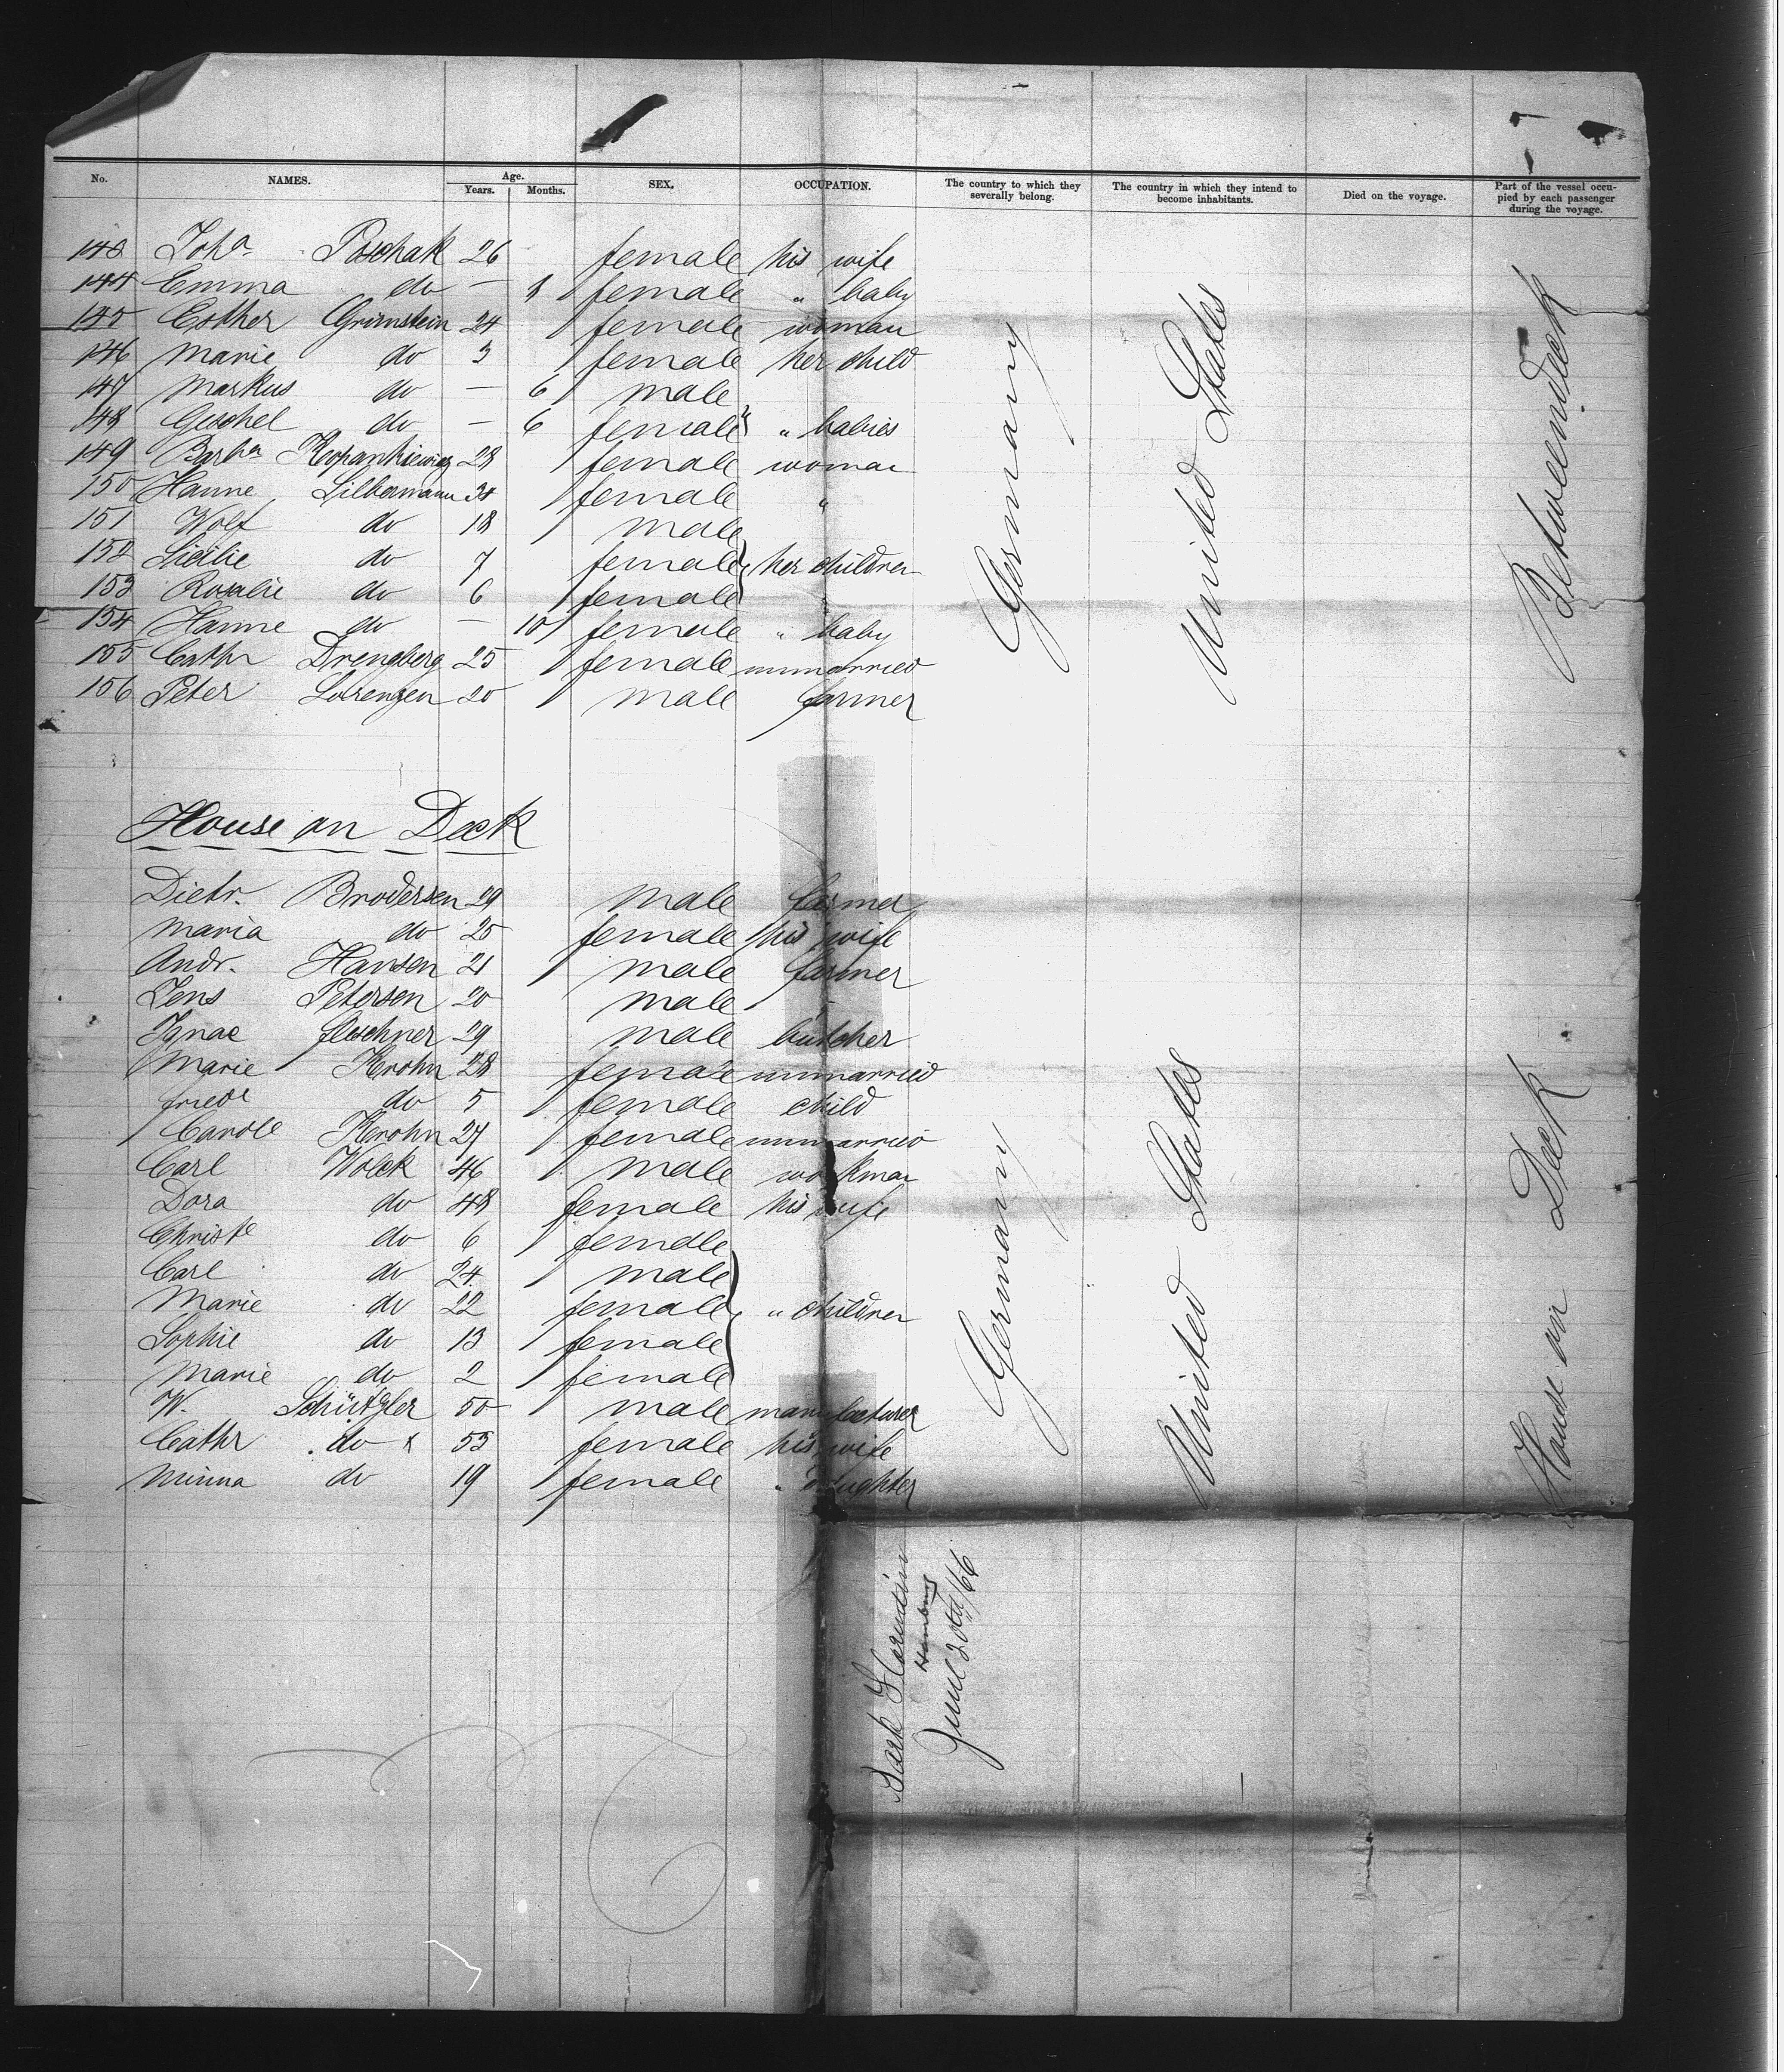 No. NAMES. Age. Years. Months. SEX. OCCUPATION. The country to which they severally belong. The country in which they intend to become inhabitants. Died on the voyage. Part of the vessel occupied by each passenger during the voyage.
143 Joha Poschak 26 female his wife
144 Emma do — female " baby
145 Esther Grünstein 24 female woman
146 Marie do 3 female her child
147 Markus do — 6 male
148 Geschel do — 6 female " babies
149 Barba 28 female woman
150 Hanne Silbermann 34 female "
151 Wolf do 18 male
152 do 7 female her children
153 Rosalie do 6 female
154 Hanne do — 10 female " baby
155 Cathr Drengberg 25 female unmarried
156 Peter Lorenzen 20 male farmer
Germany
United States
Betweendeck
House on Deck
Dietr. Brodersen 29 male farmer
Maria do 25 female his wife
Andr. Hansen 21 male farmer
Jens Petersen 20 male "
Ignac fleschner 29 male butcher
Marie Krohn 28 female unmarried
friedr do 5 female child
Carole Krohn 27 female unmarried
Carl Wolck 46 male workman
Dora do 48 female his wife
Christe do 6 female
Carl do 24 male
Marie do 22 female " children
Sophie do 13 female
Marie do 2 female
W. Schützler 50 male manufacturer
Cathr do x 53 female his wife
Minna do 19 female " daughter
Germany
United States
House on Deck
Bark
Hamburg
June 20th/66